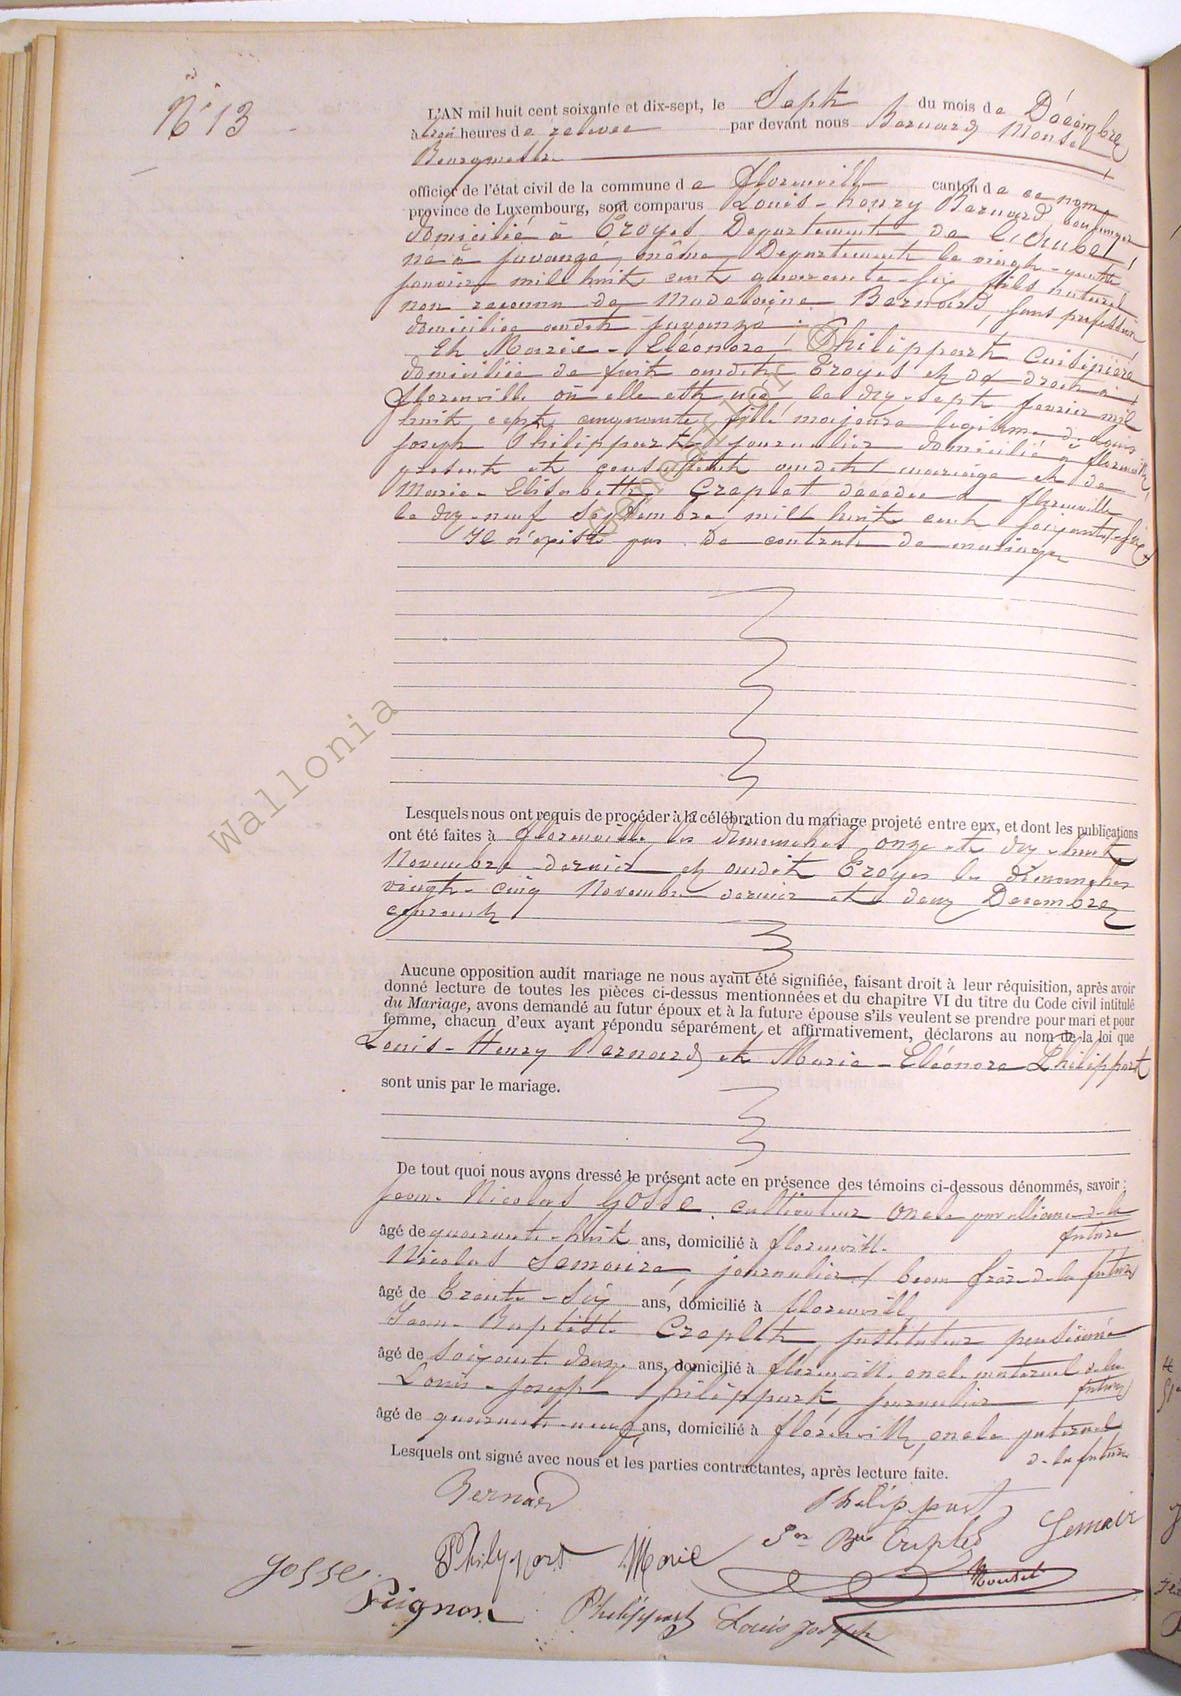 N° 13
L'AN mil huit cent soixante et dix-sept, le Sept du mois de Décembre
à heures de relevée par devant nous Bernard Monsel
Bourgmestre
officier de l'état civil de la commune de Florenville canton de ce nom,
province de Luxembourg, sont comparus Louis-henry Bernard, boulanger
domicilié à Troyes Département de L'Aube,
né à juvanzé, même Département le vingt-quatre
janvier mil huit cent quarante-six fils naturel
non reconnu de Madelaine Bernard, sans profession
domiciliée audit juvanzé;
Et Marie-Eléonore Philippart Cuisinière
domiciliée de fait audit Troyes et de droit à
florenville où elle est née le dix-sept février mil
huit cent cinquante, fille majeure légitime de Louis
joseph Philippart, journalier domicilié à florenville
présent et consentant audit mariage et de
Marie-Elisabeth Craplet décédée à florenville
le dix-neuf Septembre mil huit cent soixante-six
Il n'existe pas de contrat de mariage
Wallonia
Genealogy
Lesquels nous ont requis de procéder à la célébration du mariage projeté entre eux, et dont les publications
ont été faites à florenville les dimanches onze et dix-huit
Novembre dernier et audit Troyes les dimanches
vingt-cinq Novembre dernier et deux Décembre
courant
Aucune opposition audit mariage ne nous ayant été signifiée, faisant droit à leur réquisition, après avoir
donné lecture de toutes les pièces ci-dessus mentionnées et du chapitre VI du titre du Code civil intitulé
du Mariage, avons demandé au futur époux et à la future épouse s'ils veulent se prendre pour mari et pour
femme, chacun d'eux ayant répondu séparément et affirmativement, déclarons au nom de la loi que
Louis-Henry Bernard et Marie-Eléonore Philippart
sont unis par le mariage.
De tout quoi nous avons dressé le présent acte en présence des témoins ci-dessous dénommés, savoir:
jean Nicolas Gosse, cultivateur oncle par alliance de la
future
âgé de quarante-huit ans, domicilié à florenville
Nicolas Lemaire, journalier, beau frère de la future
âgé de Trente-Six ans, domicilié à florenville
Jean-Baptiste Craplet, instituteur pensionné
âgé de soixante douze ans, domicilié à florenville, oncle maternel de la
future
Louis-joseph Philippart journalier
âgé de quarante-neuf ans, domicilié à florenville, oncle paternel
de la future
Lesquels ont signé avec nous et les parties contractantes, après lecture faite.
Bernard Philippart
Philippart Marie Jn Bte Craplet Lemaire
Gosse Monsel
Pignon Philippart Louis Joseph